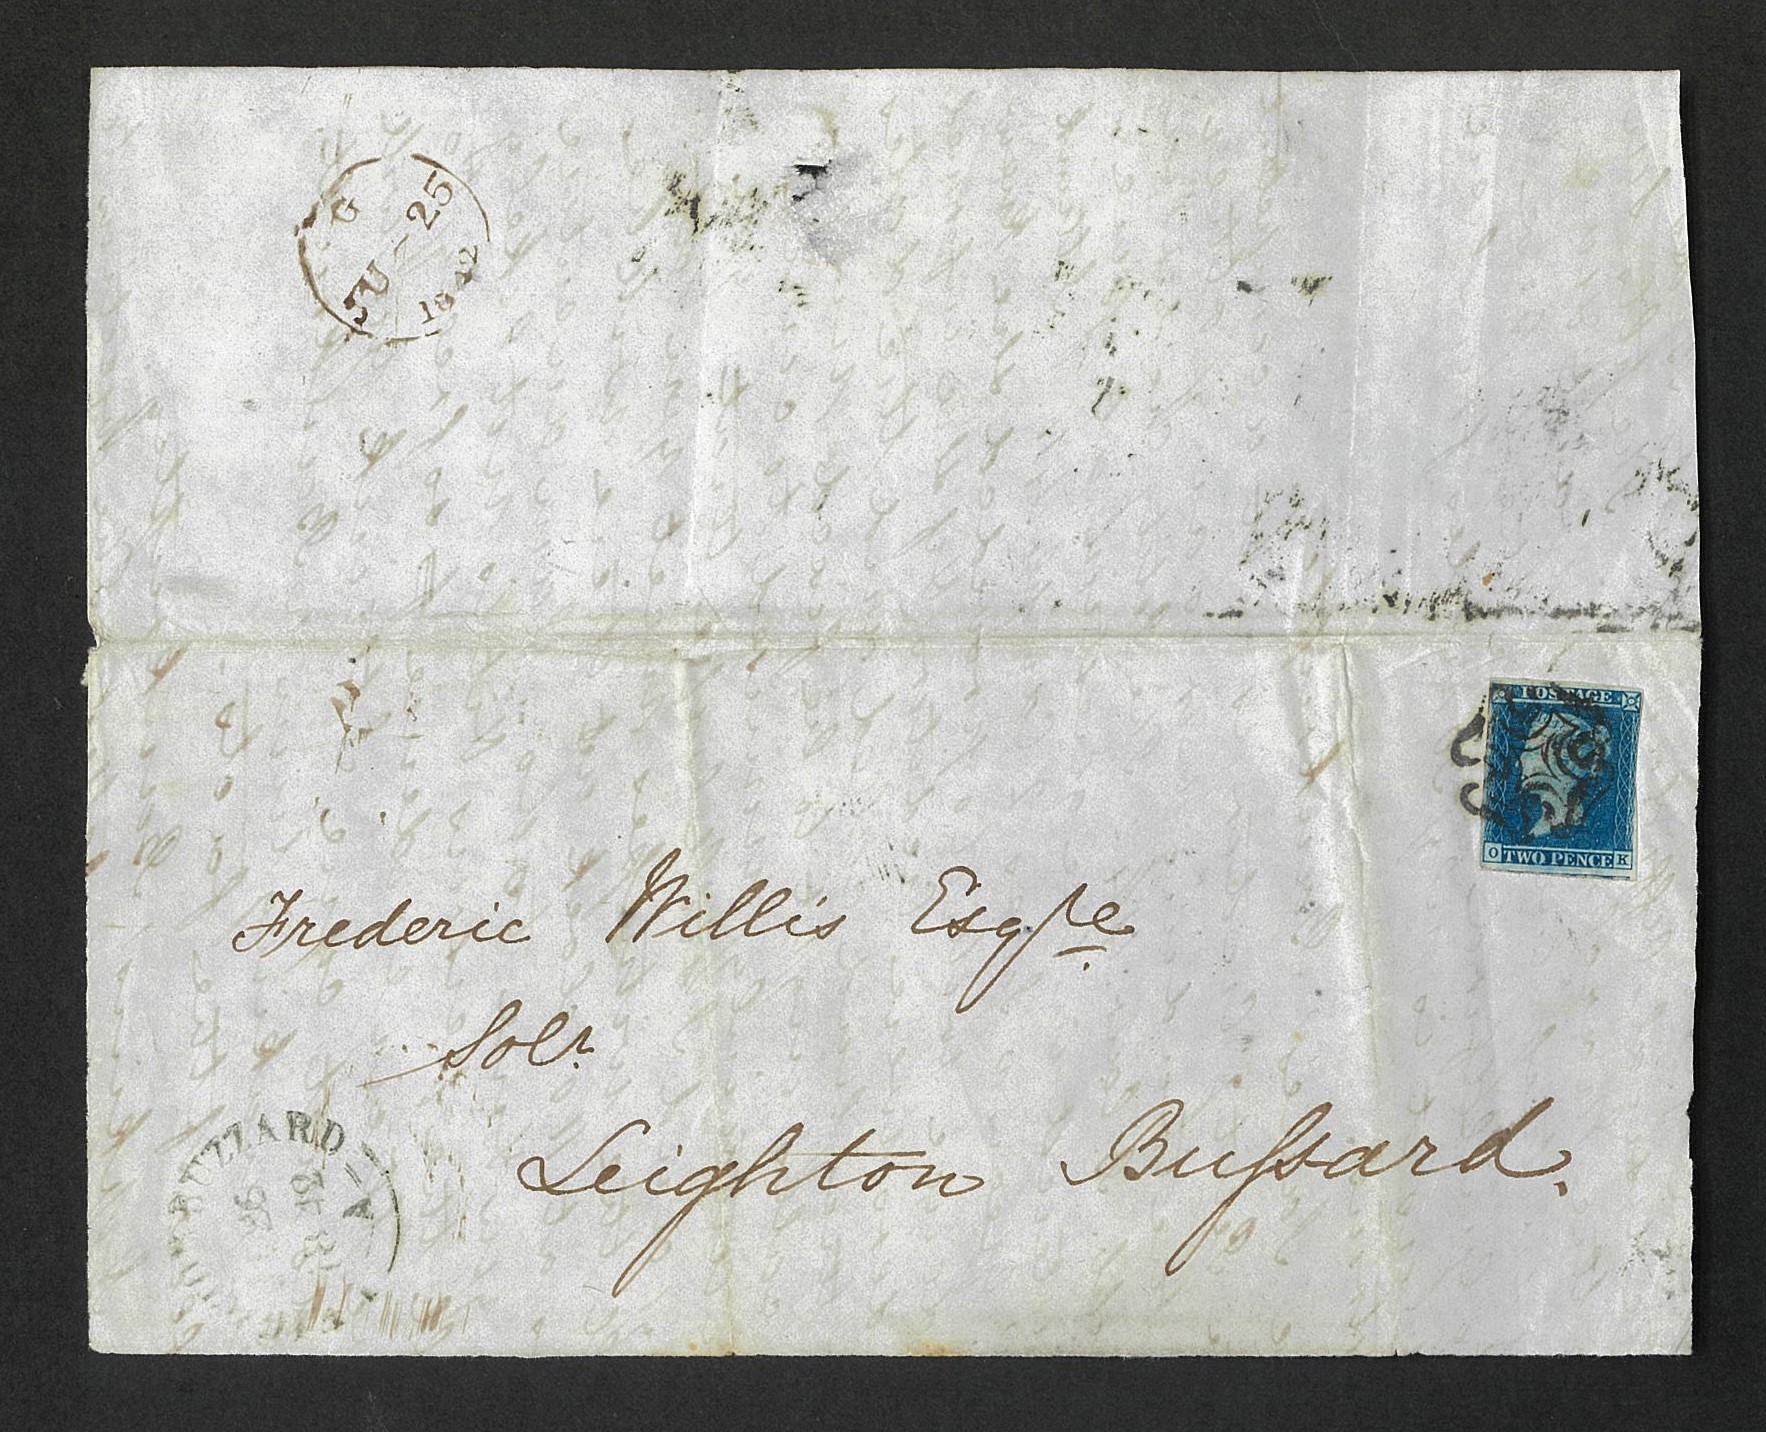 G
JU - 25
1842
POSTAGE
O TWO PENCE K
Frederic Willis Esqre.
Solr.
Leighton Bufsard.
BUZZARD - A
26
42